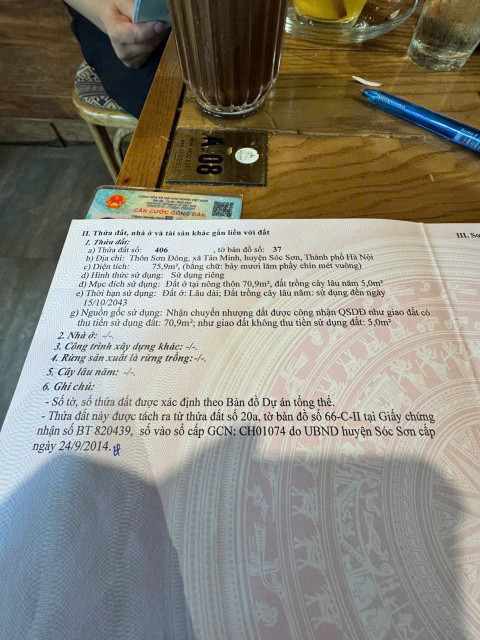 A.08
CĂN CƯỚC CÔNG DÂN
II. Thửa đất, nhà ở và tài sản khác gắn liền với đất
III. Sơ
1. Thửa đất:
a) Thửa đất số: 406 , tờ bản đồ số: 37
b) Địa chỉ: Thôn Sơn Đông, xã Tân Minh, huyện Sóc Sơn, Thành phố Hà Nội
c) Diện tích: 75,9m², (bằng chữ: bảy mươi lăm phẩy chín mét vuông)
d) Hình thức sử dụng: Sử dụng riêng
đ) Mục đích sử dụng: Đất ở tại nông thôn 70,9m², đất trồng cây lâu năm 5,0m²
e) Thời hạn sử dụng: Đất ở: Lâu dài; Đất trồng cây lâu năm: sử dụng đến ngày
15/10/2043
g) Nguồn gốc sử dụng: Nhận chuyển nhượng đất được công nhận QSDĐ như giao đất có
thu tiền sử dụng đất: 70,9m²; như giao đất không thu tiền sử dụng đất: 5,0m²
2. Nhà ở: -/-.
3. Công trình xây dựng khác: -/-.
4. Rừng sản xuất là rừng trồng: -/-.
5. Cây lâu năm: -/-.
6. Ghi chú:
- Số tờ, số thửa đất được xác định theo Bản đồ Dự án tổng thể.
- Thửa đất này được tách ra từ thửa đất số 20a, tờ bản đồ số 66-C-II tại Giấy chứng
nhận số BT 820439, số vào sổ cấp GCN: CH01074 do UBND huyện Sóc Sơn cấp
ngày 24/9/2014.